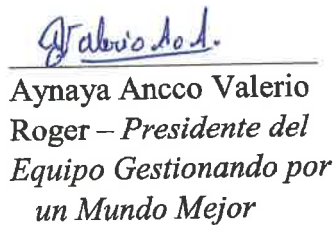 Valerio A. A.
Aynaya Ancco Valerio
Roger – Presidente del
Equipo Gestionando por
un Mundo Mejor